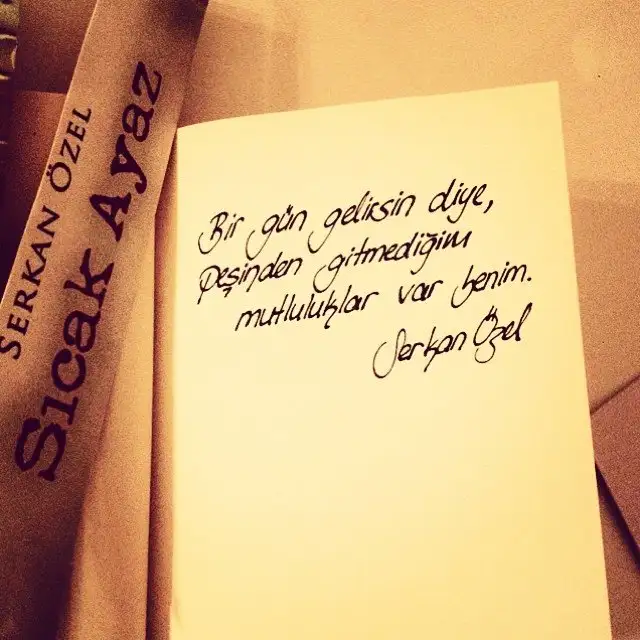 SERKAN ÖZEL
Sıcak Ayaz
Bir gün gelirsin diye,
peşinden gitmediğim
mutluluklar var benim.
Serkan Özel